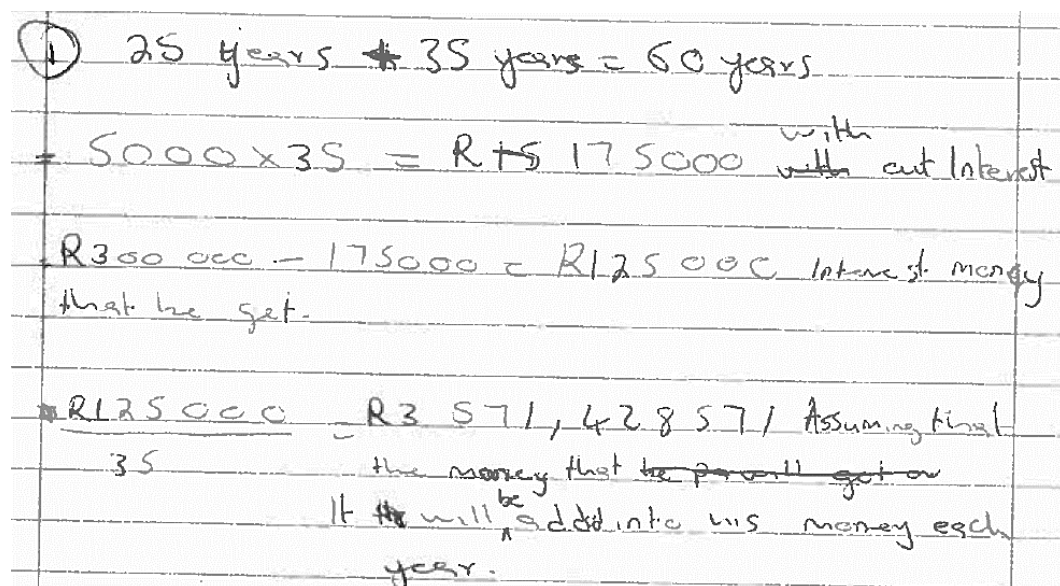 ① 25 years + 35 years = 60 years
= 5000 x 35 = R 175000 with out Interest
R300 000 - 175000 = R125 000 Interest money
that he get.
R125000 = R3 571,428571 Assuming that
35 the money that he get
It will be added into his money each
year.